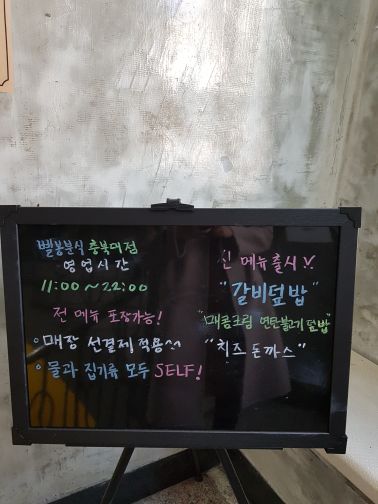 벨봉분식 충북대점
영업시간
11:00 ~ 22:00
전 메뉴 포장가능!
매장 선결제 적용^^
물과 집기류 모두 SELF!
신 메뉴출시!!
"갈비덮밥"
"매콤크림 연탄불고기 덮밥"
"치즈돈까스"